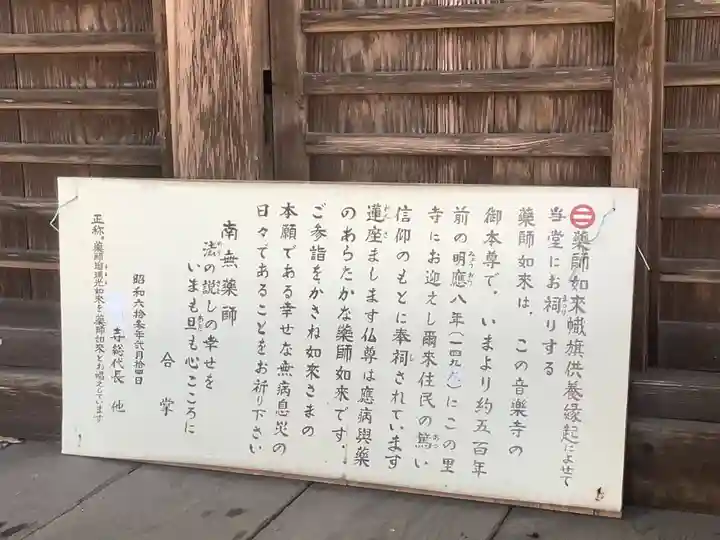 藥師如來幟旗供養縁起によせて
当堂にお祠りする
藥師如来は、この音樂寺の
御本尊で、いまより約五百年
前の明應八年(一四九 )にこの里
寺にお迎えし爾来住民の篤い
信仰のもとに奉祠されています
蓮座まします仏尊は應病與藥
のあらたかな藥師如来です。
ご参詣をかさね如来さまの
本願である幸せな無病息災の
日々であることをお祈り下さい
南無藥師
法の説しの幸せを
いまも旦も心こころに
合掌
昭和六拾参年弐月拾四日
寺総代長 他
正称。藥師瑠璃光如来を藥師如来とお唱えしています